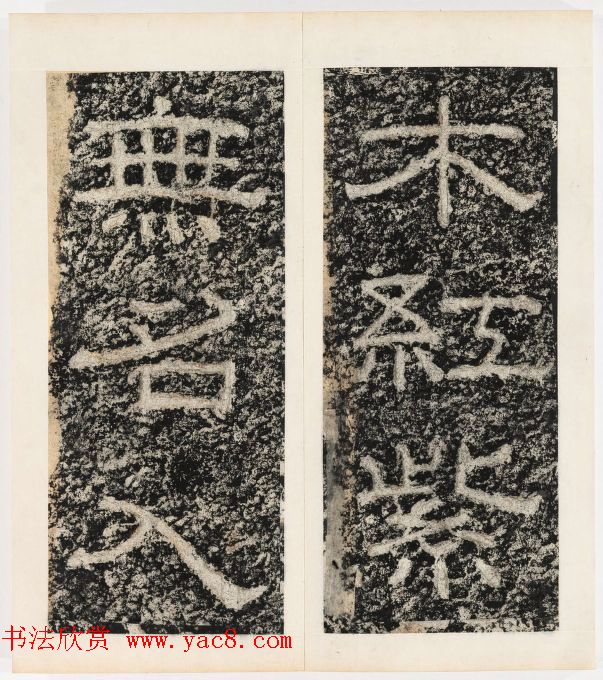 木紅紫
無名入
书法欣赏 www.yac8.com